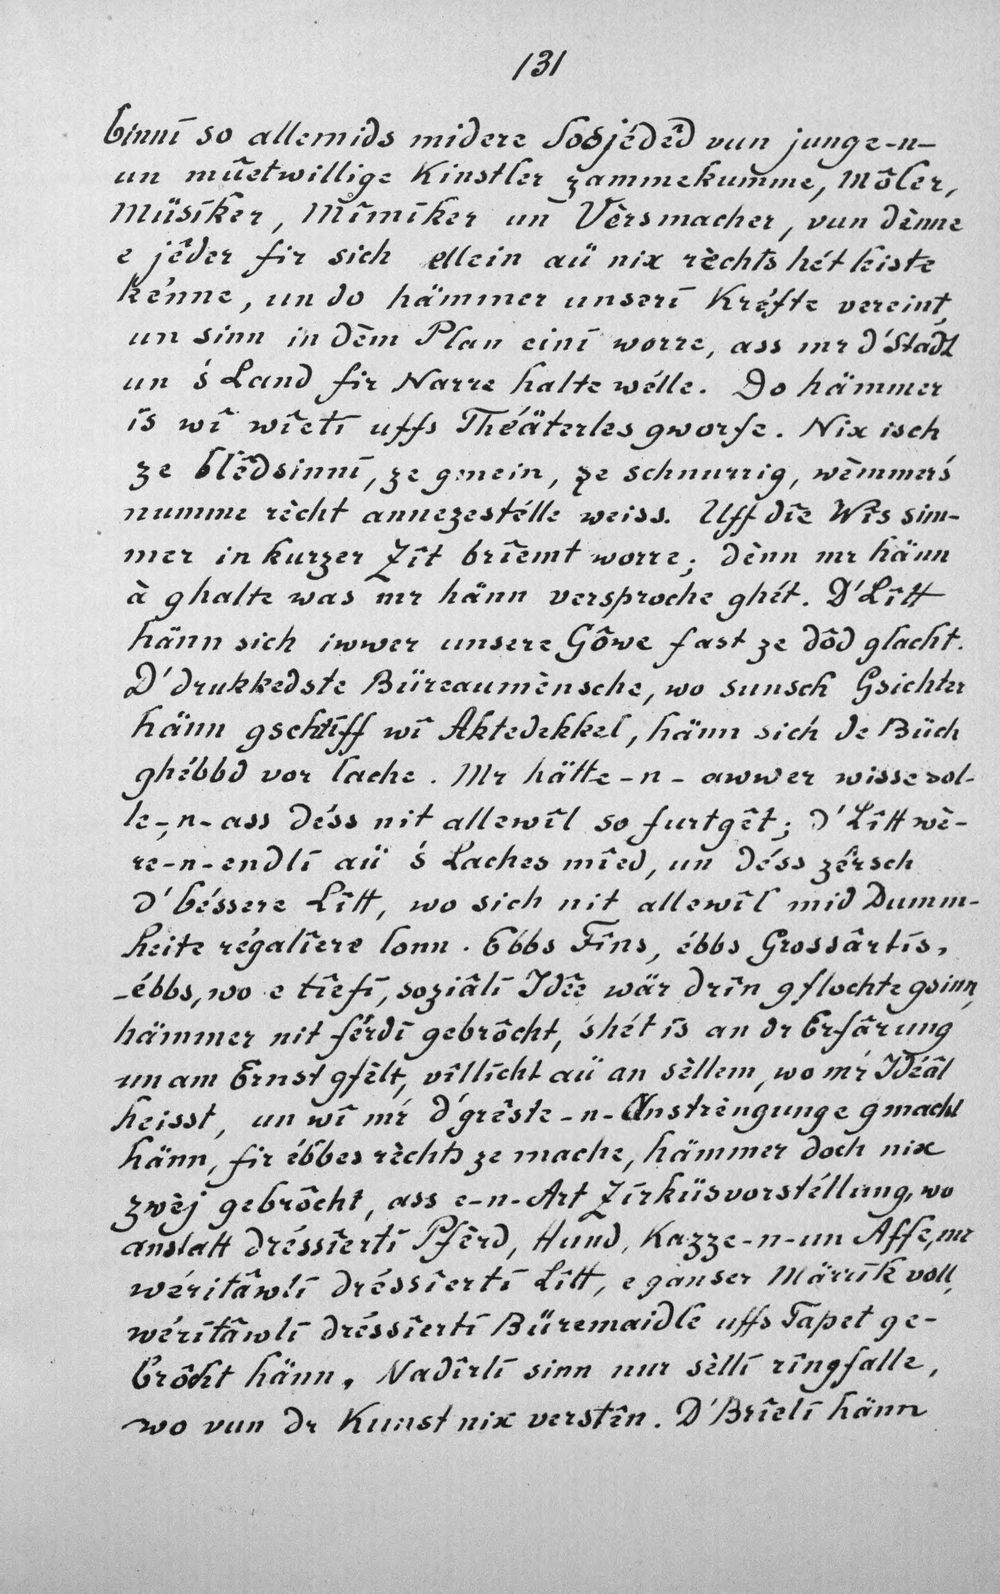 131
binnî so allemids midere Sosjédêd vun junge-n-
un mûetwillige Kinstler zammekumme, Môler,
Müsîker, Mîmîker un Vèrsmacher, vun dènne
e jêder fir sich ellein aü nix rèchts hét leiste
kénne, un do hämmer unserî Kréfte vereint,
un sinn in dèm Plan einî worre, ass mr d'Stadt
un 's Land fir Narre halte wélle. Do hämmer
îs wî wîetî uffs Théäterles gworfe. Nix isch
ze blêdsinnî, ze gmein, ze schnurrig, wèmmer's
numme rècht annezestélle weiss. Uff die Wîs sim-
mer in kurzer Zît brîemt worre; dènn mr hänn
à ghalte was mr hänn versproche ghét. D'Lîtt
hänn sich iwwer unsere Gôwe fast ze dôd glacht.
D'drukkedste Büreaumènsche, wo sunsch Gsichter
hänn gschtîff wî Aktedekkel, hänn sich de Büch
ghébbd vor lache. Mr hätte-n-awwer wisse sol-
le-n-ass déss nit allewîl so furtgêt; d'Lîtt wè-
re-n-endlî aü 's Laches mîed, un déss zêrsch
d'béssere Lîtt, wo sich nit allewîl mid Dumm-
heite régalîere lonn. Ebbs Fîns, ébbs Grossârtîs,
ébbs, wo e tîefî, soziâlî Idêe wär drîn gflochte gsinn,
hämmer nit férdî gebrôcht, 's hét îs an dr Erfârung
un am Ernst gfèlt, vîllîcht aü an sèllem, wo mr Idéâl
heisst, un wî mr d'grêste-n-Anstrèngunge gmacht
hänn, fir ébbes rèchts ze mache, hämmer doch nix
zwèj gebrôcht, ass e-n-Art Zîrküsvorstéllung, wo
anstatt dréssîertî Pfêrd, Hund, Kazze-n-un Affe, mr
wéritâwlî dréssîertî Lîtt, e ganser Märrîk voll,
wérîtâwlî dréssîertî Büremaidle uffs Tapet ge-
brôcht hänn. Nadîrlî sinn nur sèllî rîngfalle,
wo vun dr Kunst nix verstîn. D'Brîelî hänn